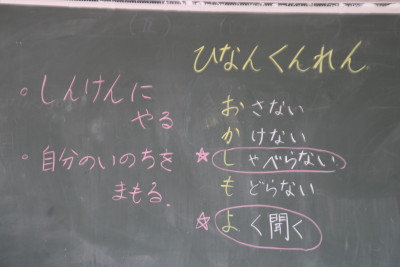 ひなんくんれん
○しんけんに
やる
・自分のいのちを
まもる.
おさない
かけない
☆しゃべらない
もどらない
☆よく聞く